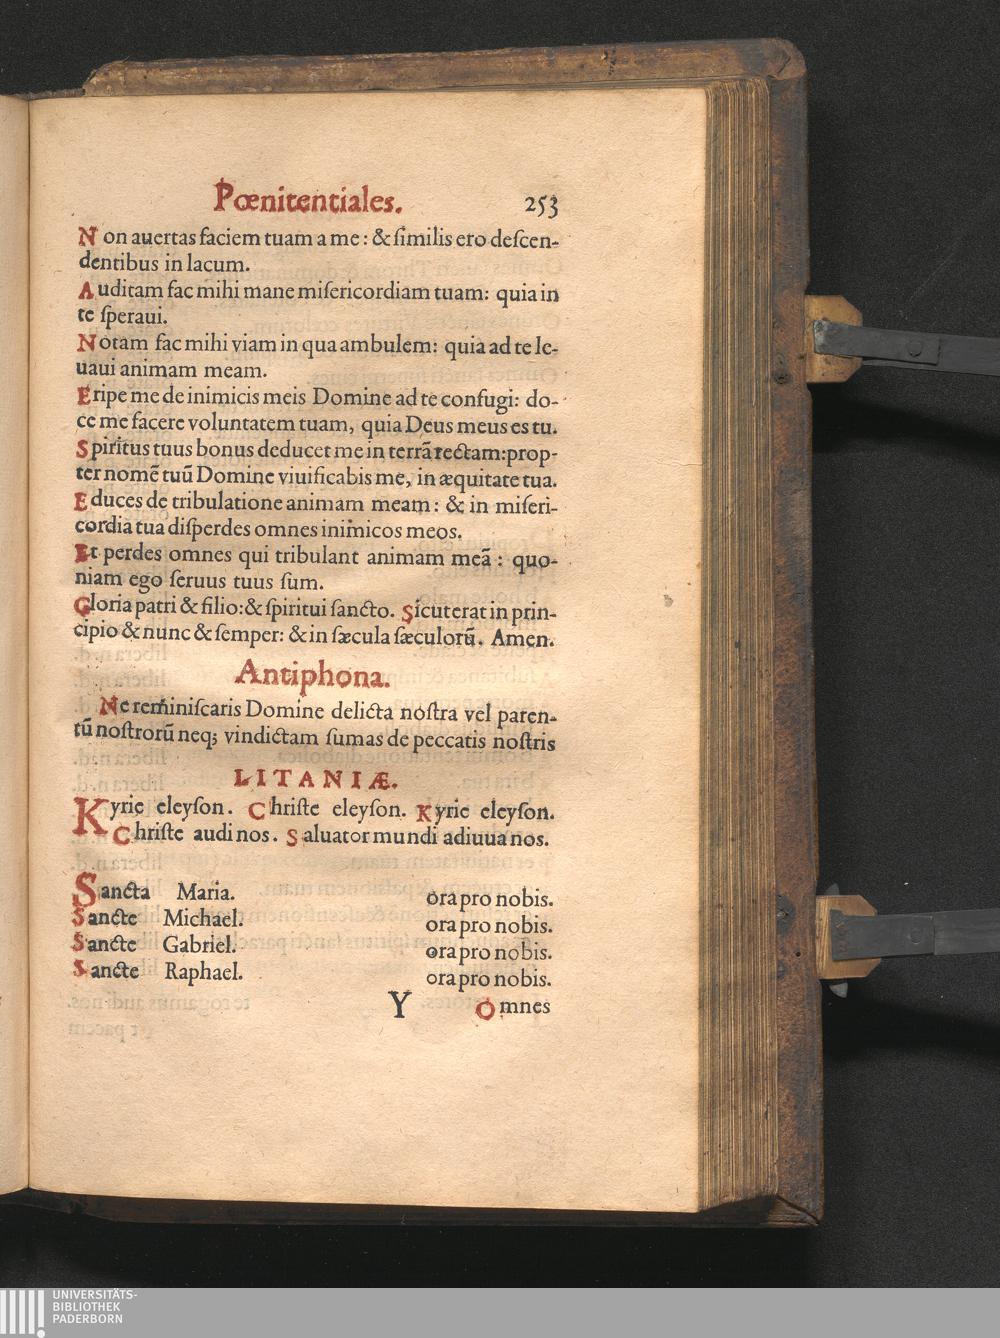 Pœnitentiales. 253
Non auertas faciem tuam a me: & ſimilis ero deſcen-
dentibus in lacum.
Auditam fac mihi mane miſericordiam tuam: quia in
te ſperaui.
Notam fac mihi viam in qua ambulem: quia ad te le-
uaui animam meam.
Eripe me de inimicis meis Domine ad te confugi: do-
ce me facere voluntatem tuam, quia Deus meus es tu.
Spiritus tuus bonus deducet me in terrã rectam: prop-
ter nomẽ tuũ Domine viuificabis me, in æquitate tua.
Educes de tribulatione animam meam: & in miſeri-
cordia tua diſperdes omnes inimicos meos.
Et perdes omnes qui tribulant animam meã: quo-
niam ego ſeruus tuus ſum.
Gloria patri & filio: & ſpiritui ſancto. Sicut erat in prin-
cipio & nunc & ſemper: & in ſæcula ſæculorũ. Amen.
Antiphona.
Ne reminiſcaris Domine delicta noſtra vel paren-
tũ noſtrorũ neq; vindictam ſumas de peccatis noſtris
LITANIÆ.
Kyrie eleyſon. Chriſte eleyſon. Kyrie eleyſon.
Chriſte audi nos. Saluator mundi adiuua nos.
Sancta Maria. ora pro nobis.
Sancte Michael. ora pro nobis.
Sancte Gabriel. ora pro nobis.
Sancte Raphael. ora pro nobis.
Y Omnes
UNIVERSITÄTS-
BIBLIOTHEK
PADERBORN